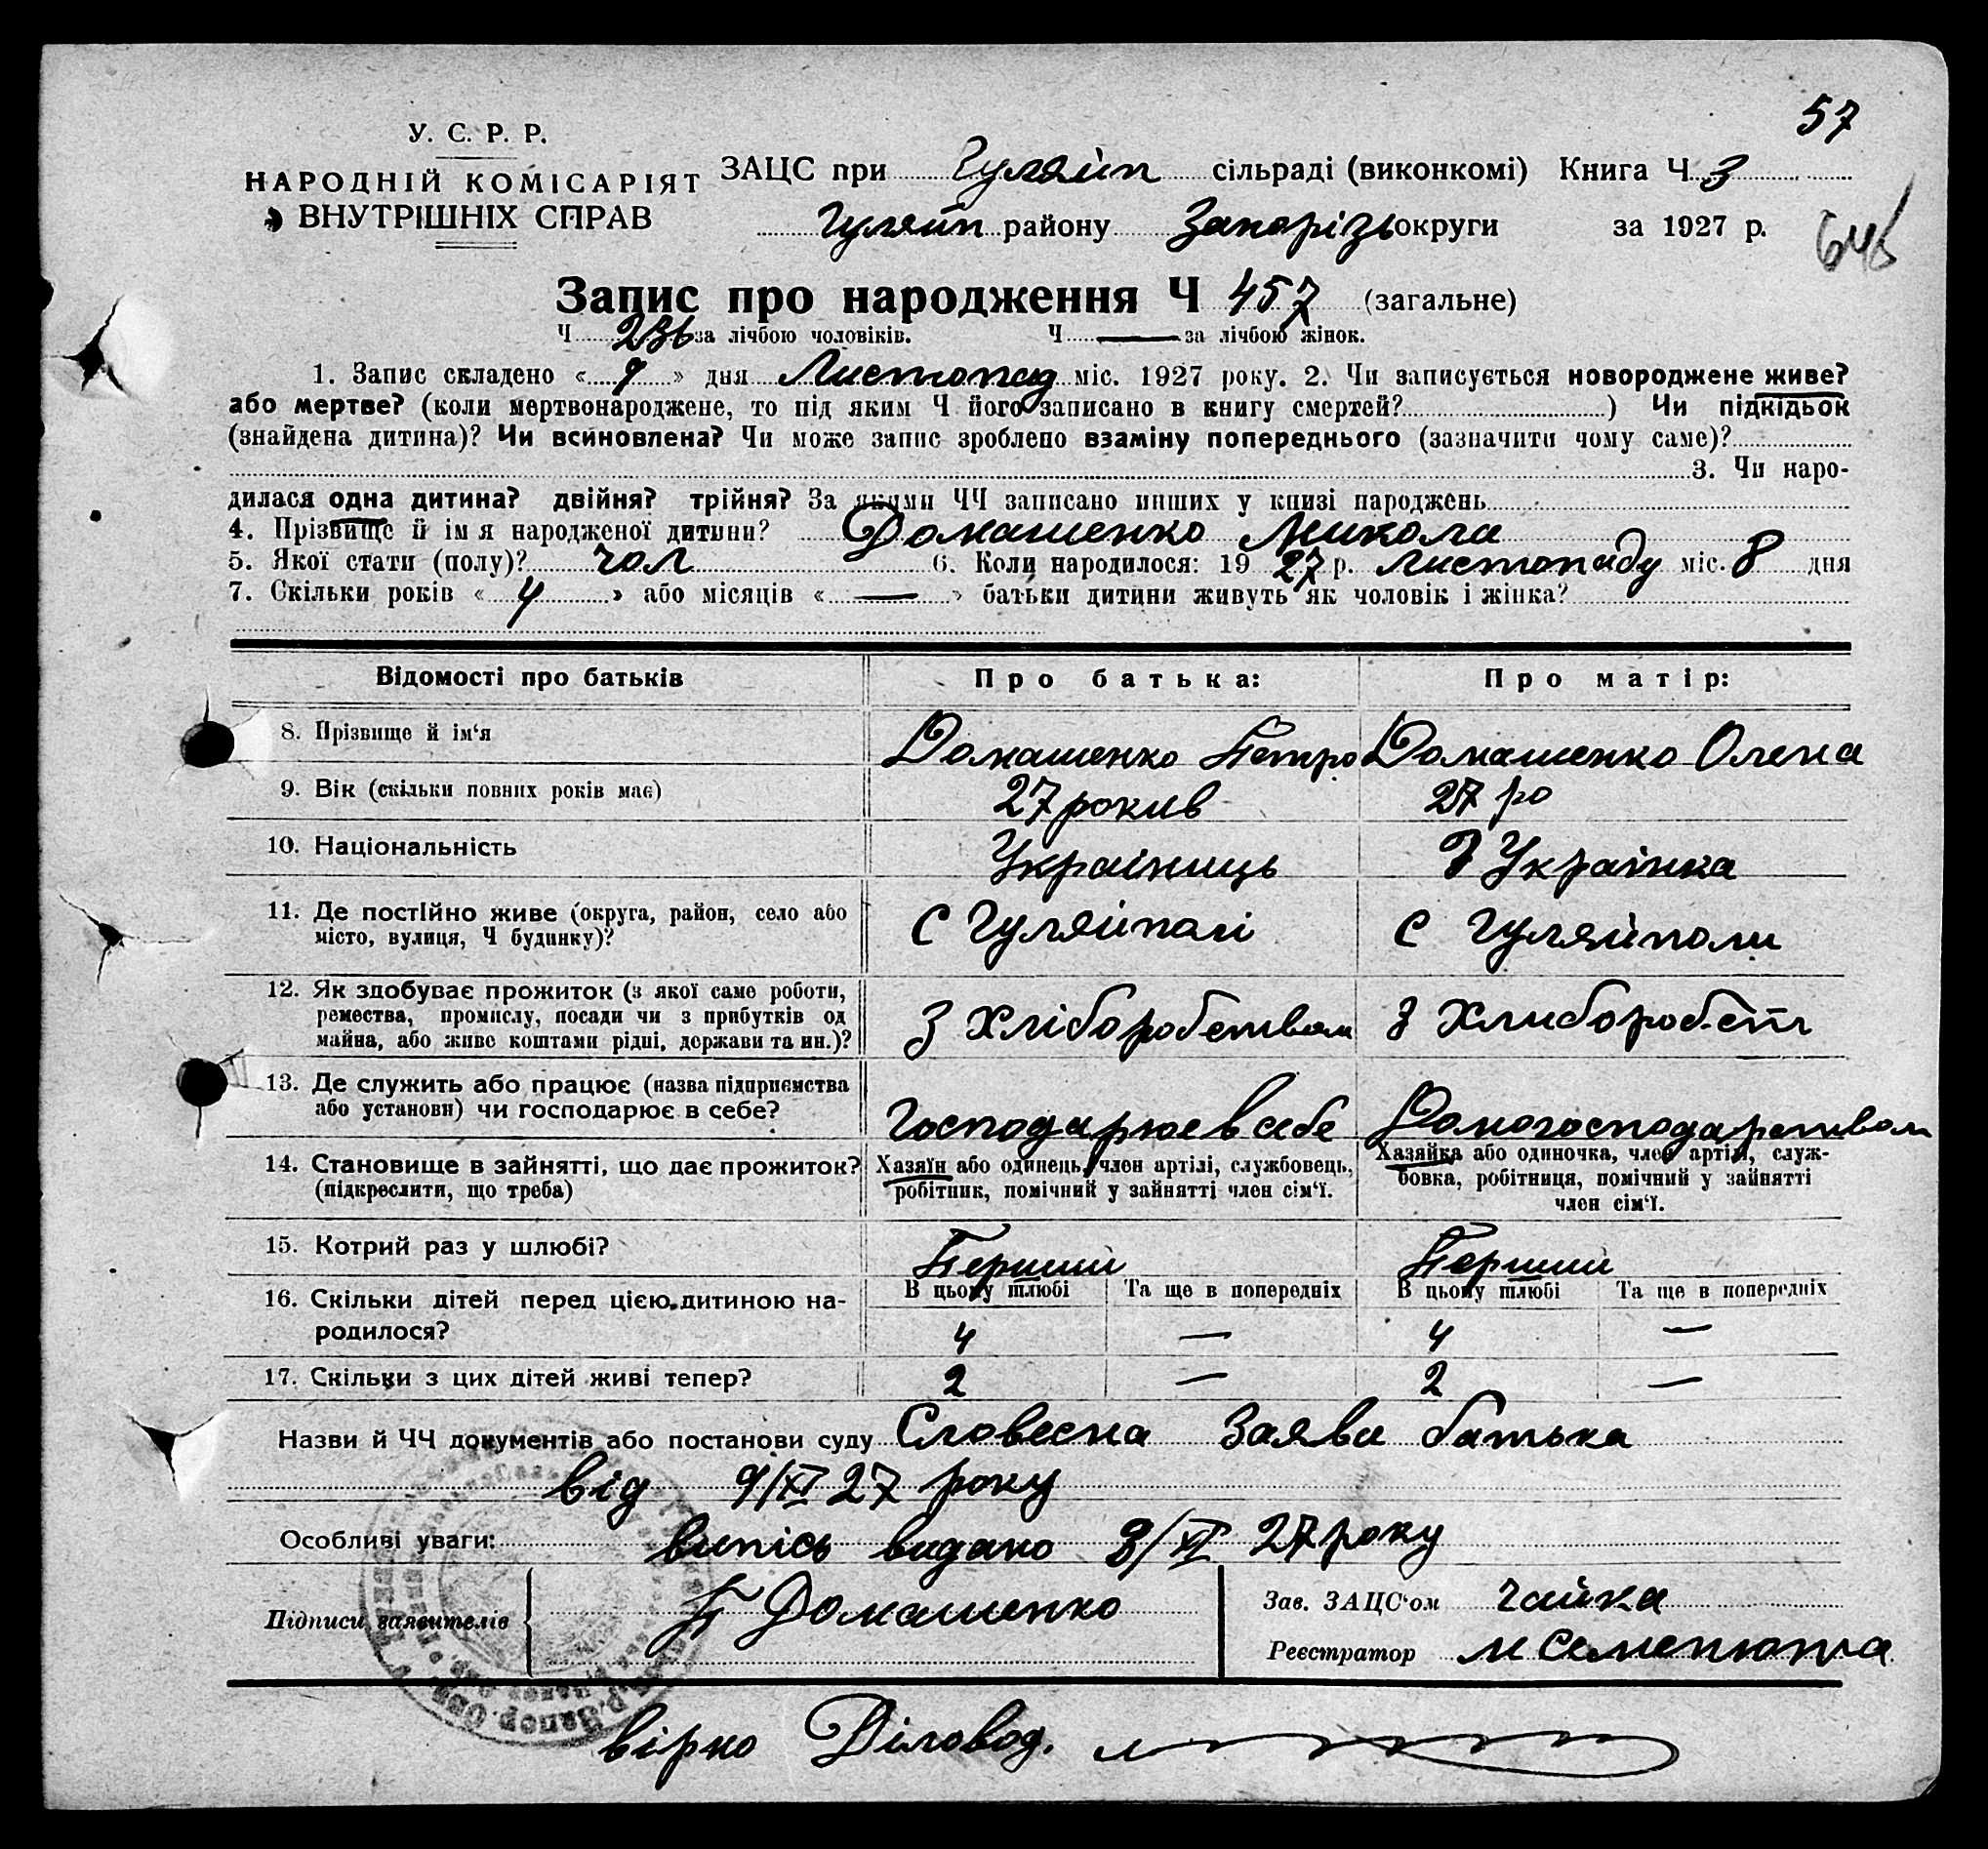 57
У. С. Р. Р.
НАРОДНІЙ КОМІСАРІЯТ
ВНУТРІШНІХ СПРАВ
ЗАЦС при Гуляйп сільраді (виконкомі) Книга Ч 3
Гуляйп району Запорізь округи за 1927 р.
Запис про народження Ч 457 (загальне)
Ч 236 за лічбою чоловіків. Ч — за лічбою жінок.
1. Запис складено « 9 » дня Листопад міс. 1927 року. 2. Чи записується новороджене живе?
або мертве? (коли мертвонароджене, то під яким Ч його записано в книгу смертей? ) Чи підкідьок
(знайдена дитина)? Чи всиновлена? Чи може запис зроблено взаміну попереднього (зазначити чому саме)?
3. Чи наро-
дилася одна дитина? двійня? трійня? За якими ЧЧ записано инших у книзі народжень
4. Прізвище й ім я народженої дитини? Домашенко Микола
5. Якої стати (полу)? чол 6. Коли народилося: 19 27 р. листопаду міс. 8 дня
7. Скільки років « 4 » або місяців « — » батьки дитини живуть як чоловік і жінка?
Відомості про батьків Про батька: Про матір:
8. Прізвище й ім'я Домашенко Петро Домашенко Олена
9. Вік (скільки повних років має) 27 рокив 27 ро
10. Національність Украіниць Украінка
11. Де постійно живе (округа, район, село або
місто, вулиця, Ч будинку)? С Гуляйполі С Гуляйполи
12. Як здобуває прожиток (з якої саме роботи,
ремества, промислу, посади чи з прибутків од
майна, або живе коштами рідні, держави та ин.)? З Хліборобством З Хлиборобств
13. Де служить або працює (назва підприємства
або установи) чи господарює в себе? Господарюе в себе Домогосподарством
14. Становище в зайнятті, що дає прожиток?
(підкреслити, що треба)
Хазяїн або одинець, член артілі, службовець,
робітник, помічний у зайнятті член сім'ї.
Хазяйка або одиночка, член артілі, служ-
бовка, робітниця, помічний у зайнятті
член сім'ї.
15. Котрий раз у шлюбі? Перший Перший
16. Скільки дітей перед цією дитиною на-
родилося?
В цьому шлюбі Та ще в попередніх В цьому шлюбі Та ще в попередніх
4 — 4 —
17. Скільки з цих дітей живі тепер? 2 — 2 —
Назви й ЧЧ документів або постанови суду Словесна Заява батька
від 9/XI 27 року
Особливі уваги: випісь видано 8/XI 27 року
Підписи заявителів П Домашенко
Зав. ЗАЦС'ом Чайка
Реєстратор М Семенюта
вірно Діловод.